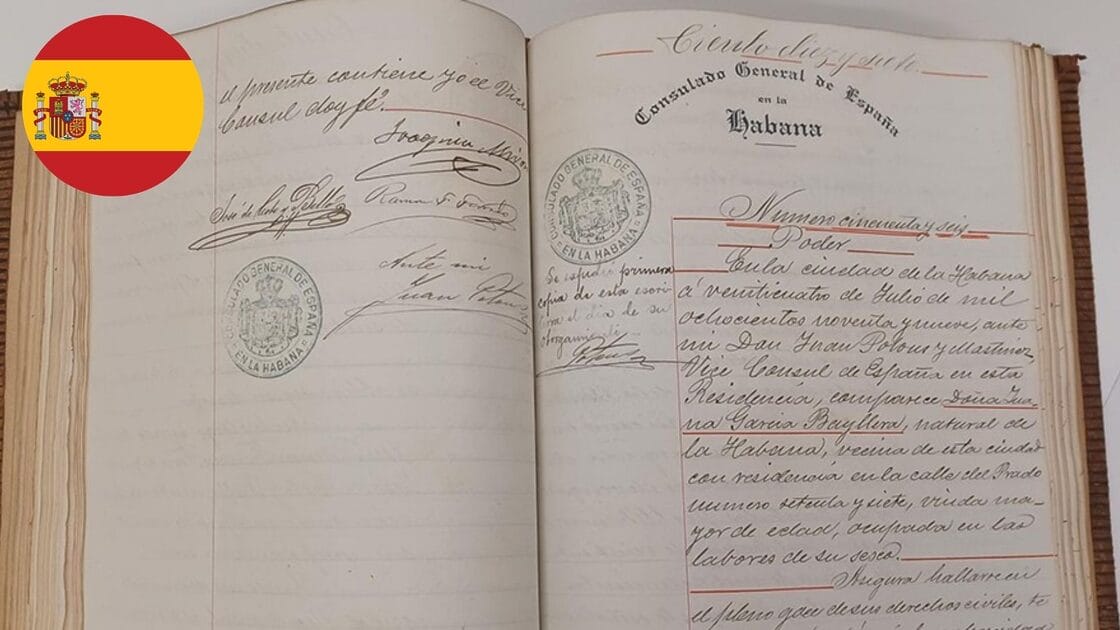 el presente contiene yo el Vice
Consul doy fé.
Joaquina
José de
Ramon F.
Ante mi
Juan Potous
CONSULADO GENERAL DE ESPAÑA
EN LA HABANA
Ciento diez y siete.
Consulado General de España
en la
Habana
CONSULADO GENERAL DE ESPAÑA
EN LA HABANA
Se espidió primera
copia de esta escri-
tura el dia de su
otorgamiento
Potous
Numero cincuenta y seis
Poder
En la ciudad de la Habana
á veinticuatro de Julio de mil
ochocientos noventa y nueve, ante
mi Don Juan Potous y Martinez
Vice Consul de España en esta
Residencia, comparece Doña Jua-
na Garcia Bayllera, natural de
la Habana, vecina de esta ciudad
con residencia en la calle del Prado
numero setenta y siete, viuda ma-
yor de edad, ocupada en las
labores de su sexo.
Asegura hallarse en
el pleno goce de sus derechos civiles, te